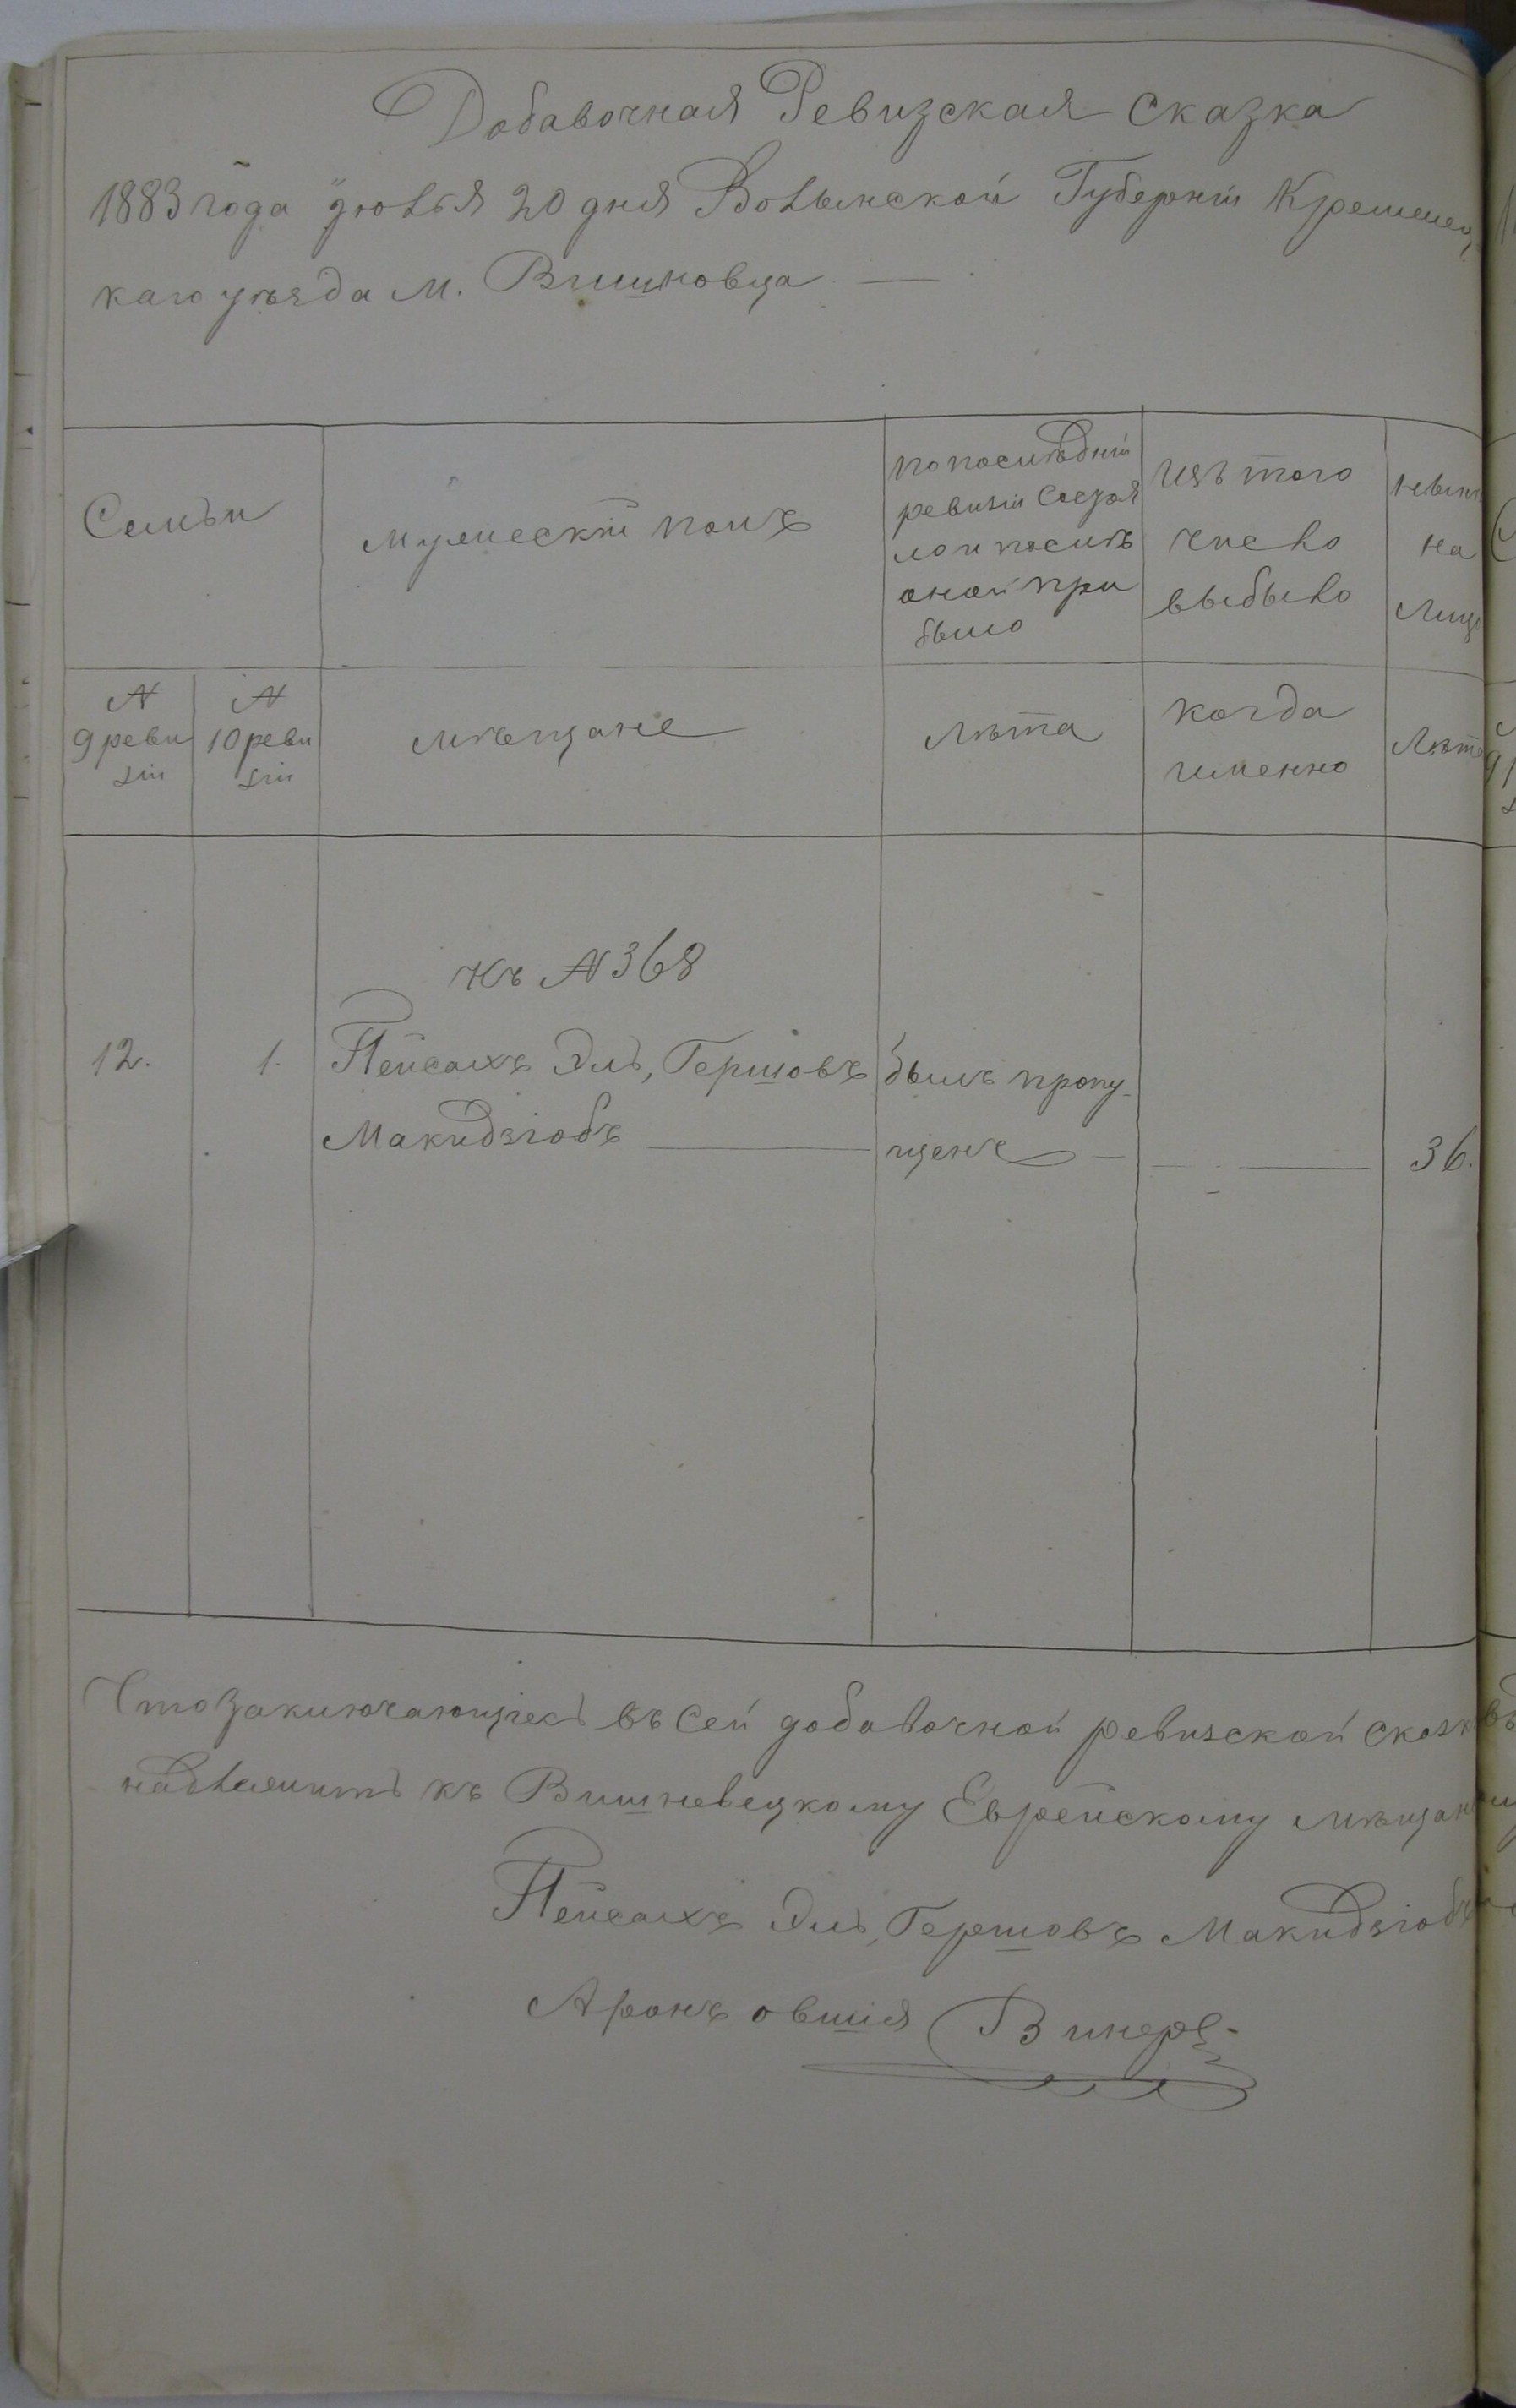 Добавочная Ревизская Сказка
1883 года Июля 20 дня Волынской Губерніи Кременец,
каго уѣзда м. Вишновца —
Семьи
мужескій полъ
по послѣдній
ревизіи Состоя
ло и послѣ
оной при
было
изъ того
число
выбыло
нынѣ
на
Лицо
№
9 реви
зіи
№
10 реви
зіи
мѣщане
лѣта
когда
именно
Лѣта
къ № 368
12.
1.
Пейсахъ Эль, Гершовъ
Макидзіобъ
былъ пропу-
щенъ
36.
Что заключающіесь въ Сей добавочной ревизской сказк
надлежитъ къ Вишневецкому Еврейскому мѣщан
Пейсахъ Эль, Гершовъ Макидзіобъ
Аронъ овшія Винеръ